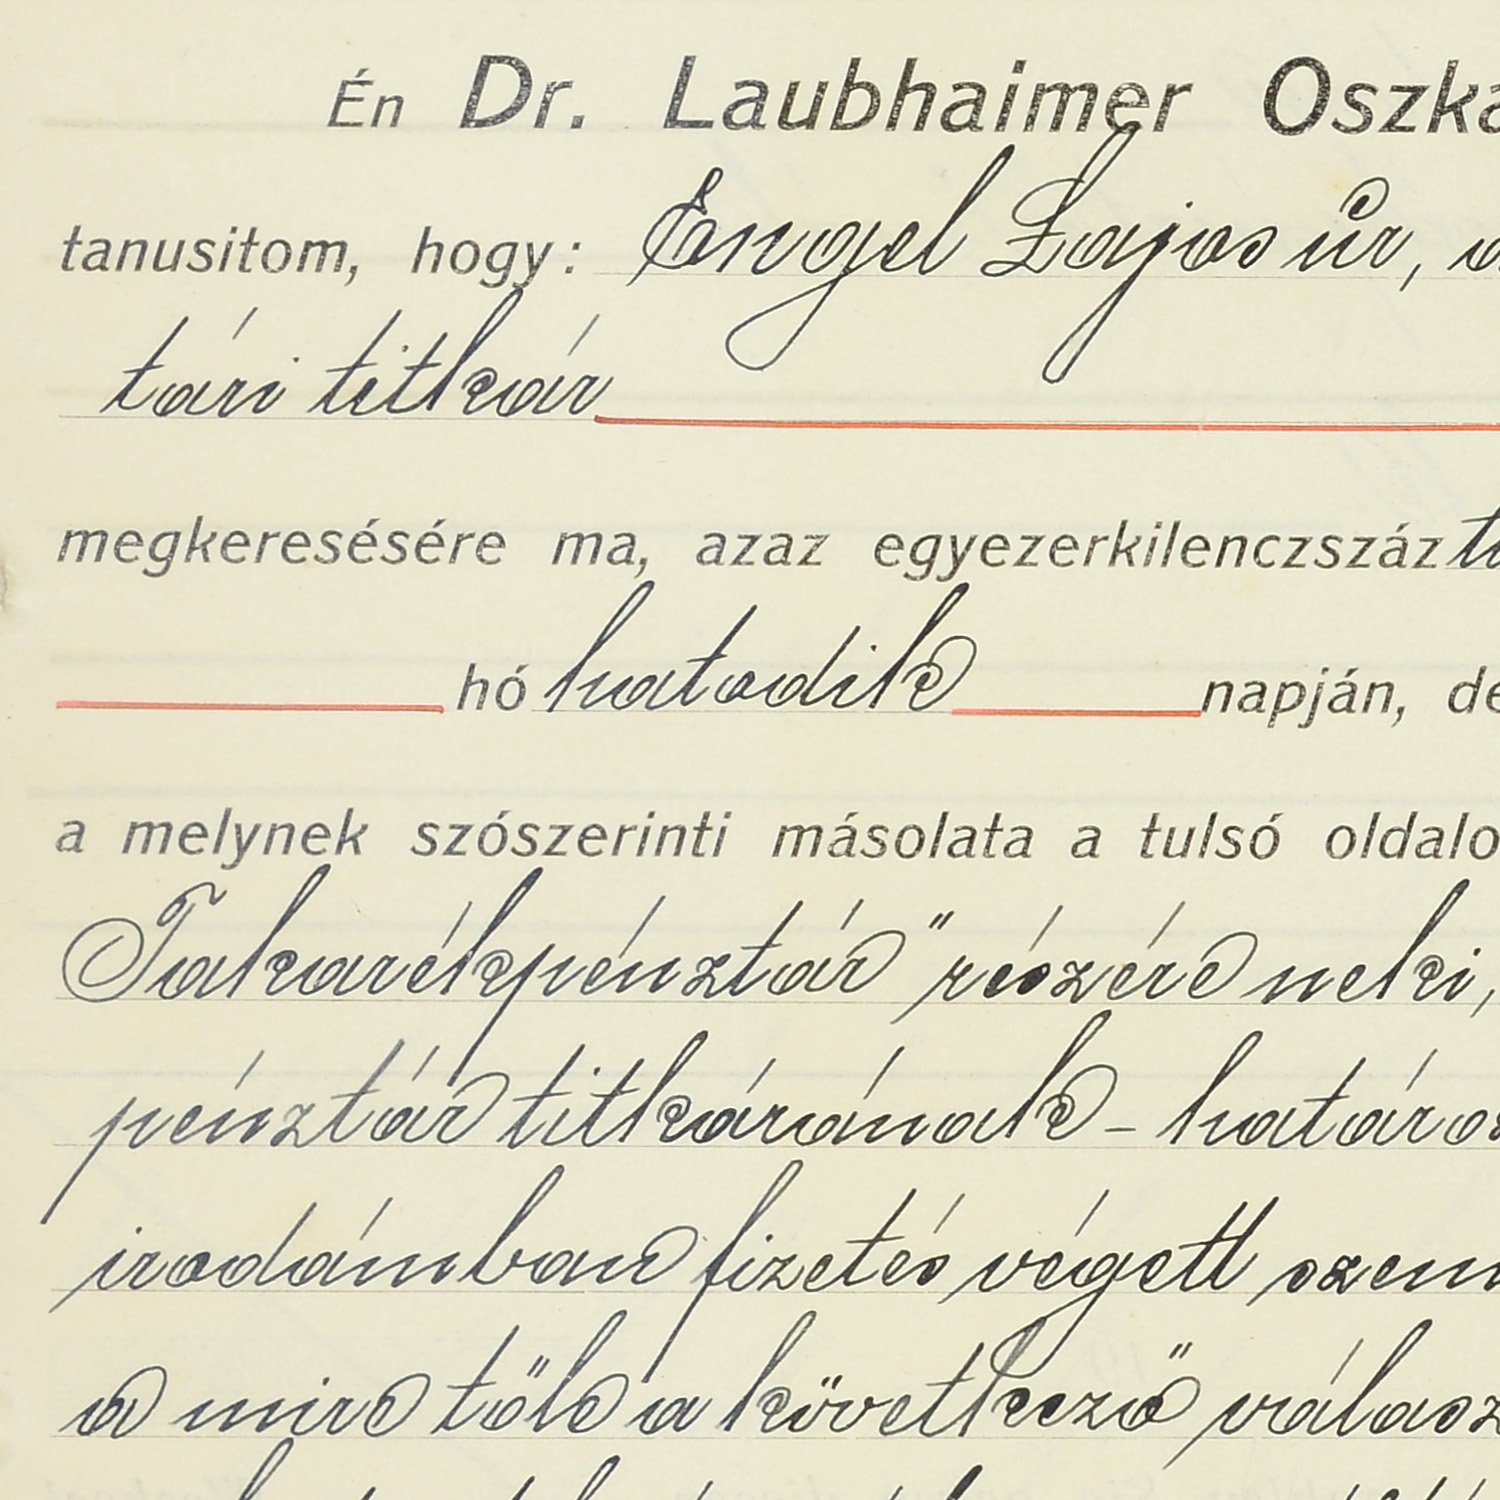 Én Dr. Laubhaimer Oszká
tanusitom, hogy: Engel Lajos úr, a
tári titkár
megkeresésére ma, azaz egyezerkilenczszáz ti
hó hatodik napján, de
a melynek szószerinti másolata a tulsó oldalo
Takarékpénztár" részére neki,
pénztár titkárának – határo
irodámban fizetés végett szem
a mire tőle a következő válasz